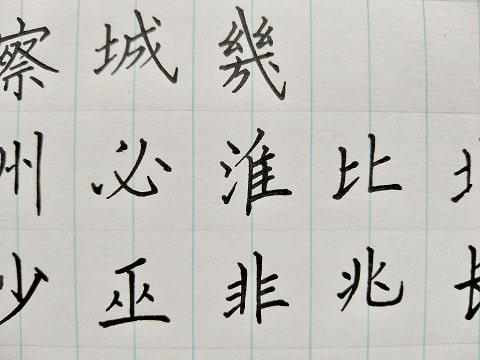 察城幾
州必淮比
少巫非兆長